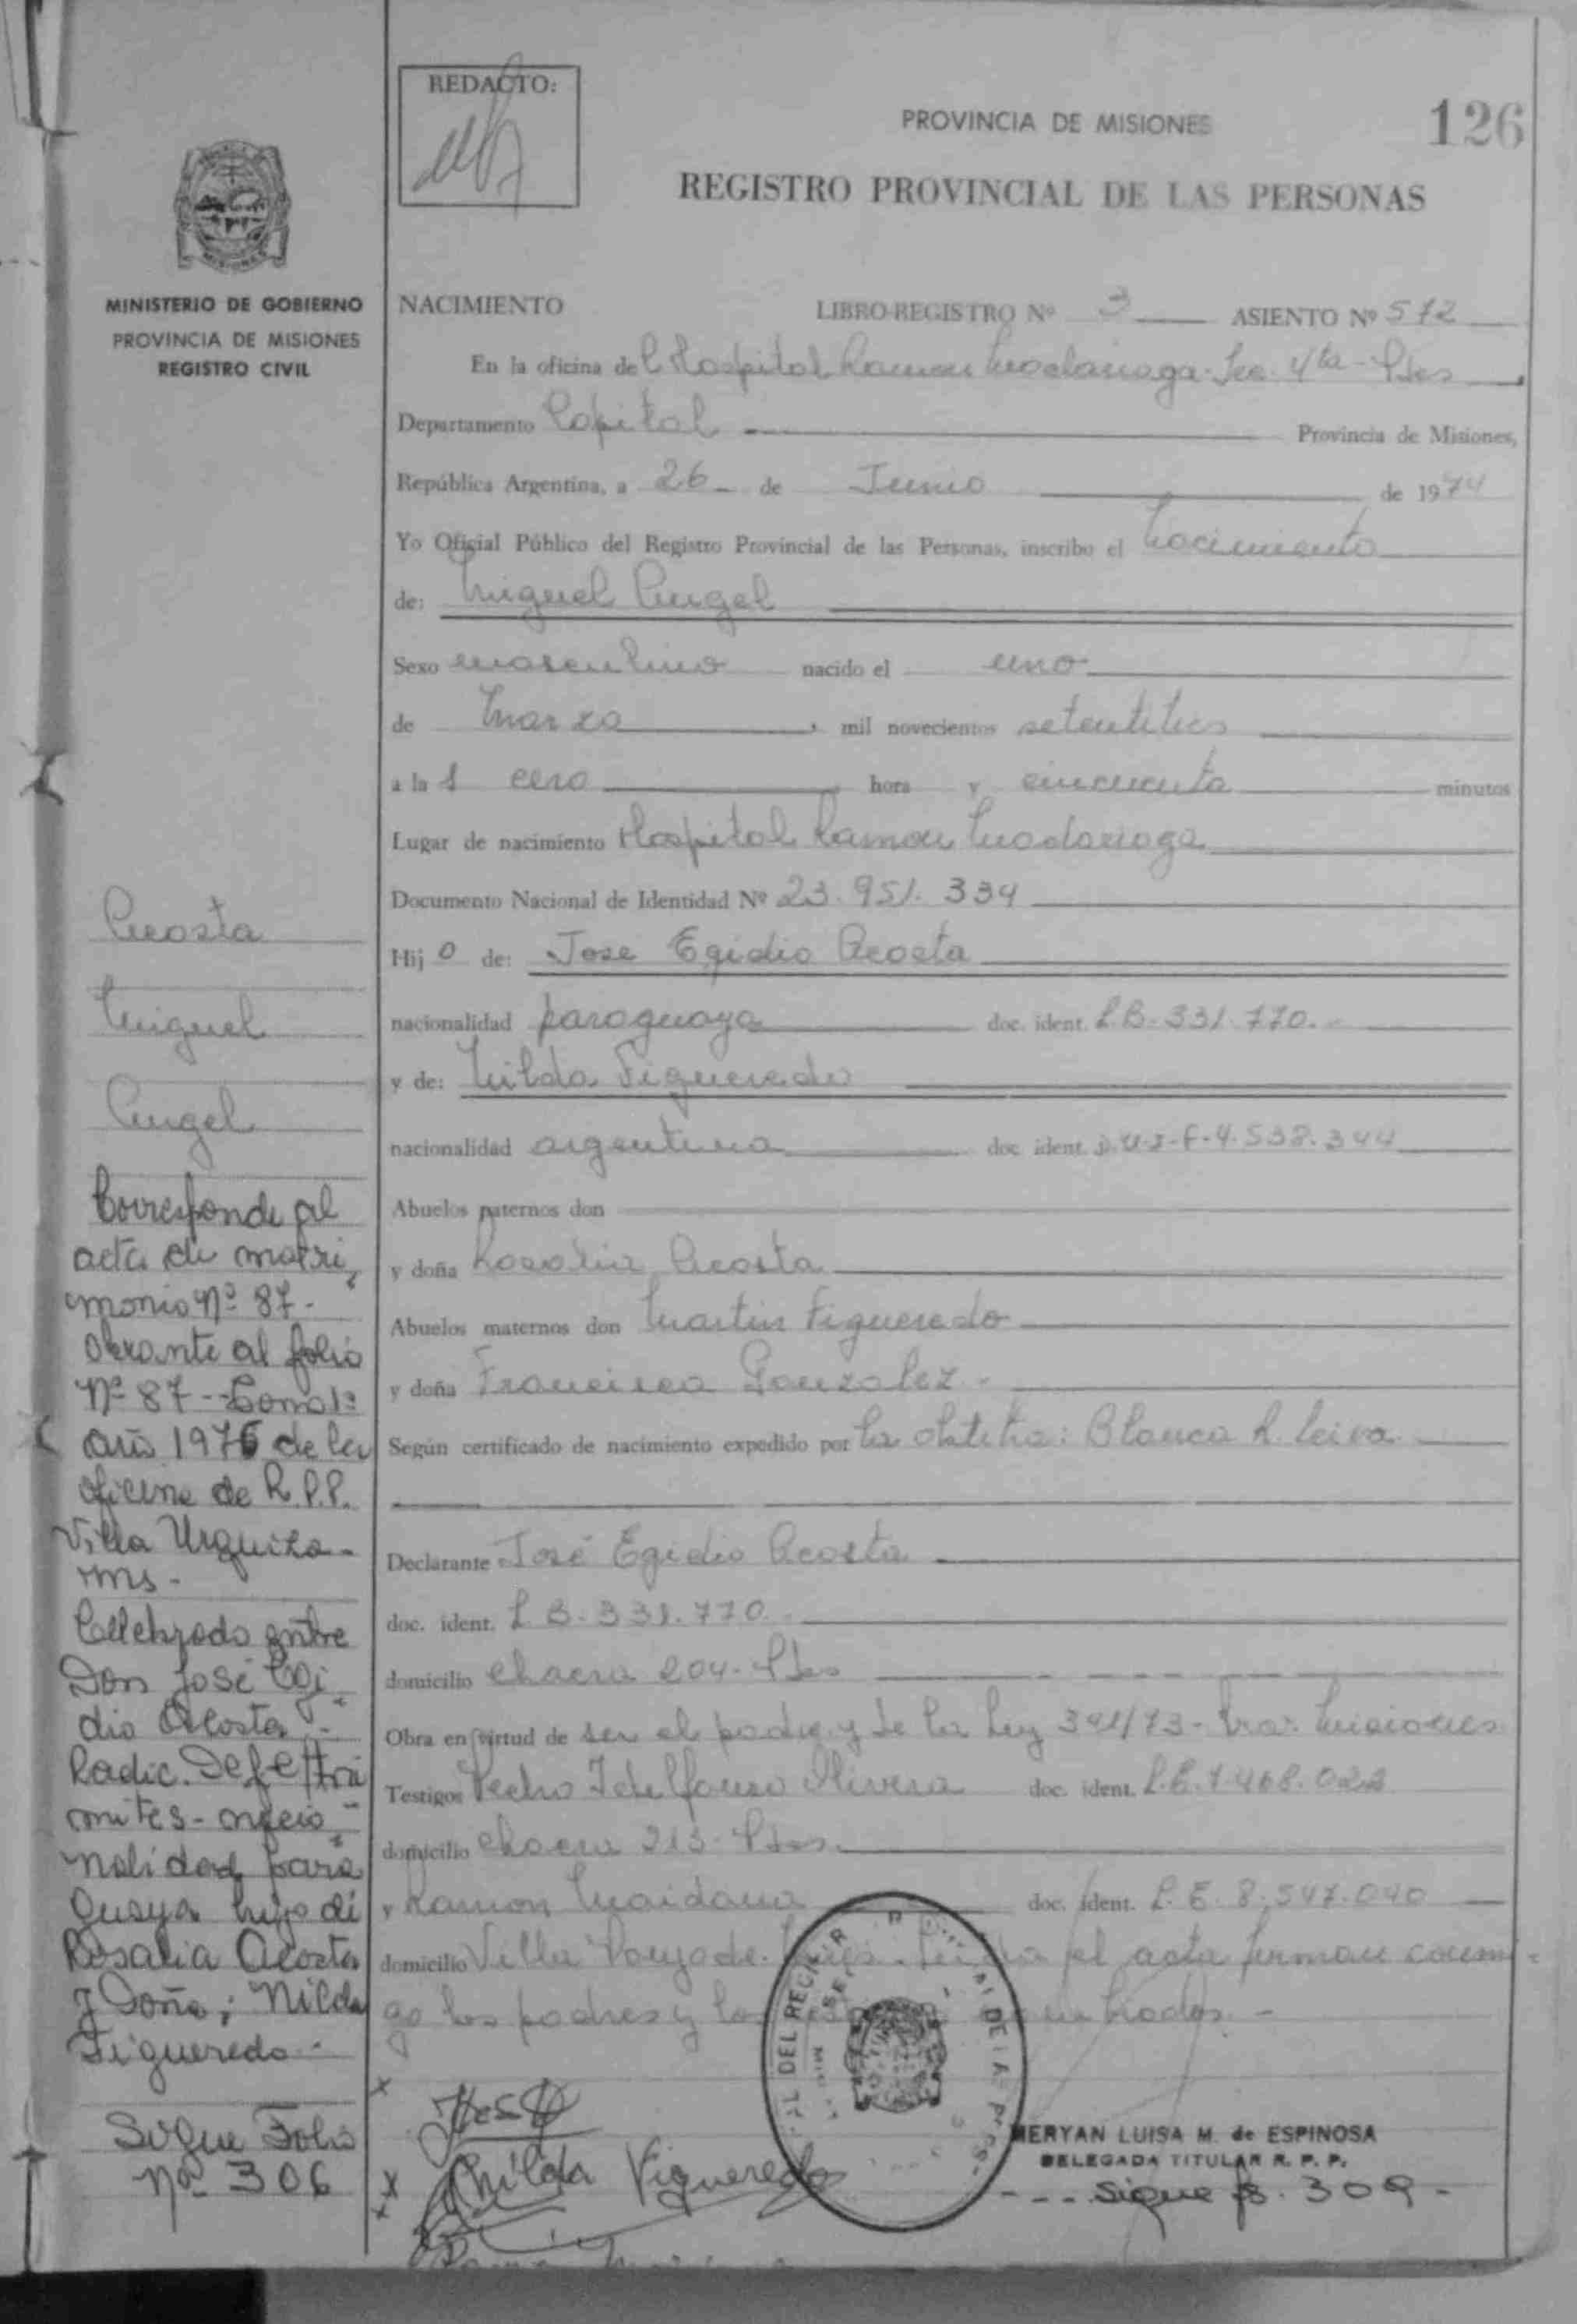 REDACTO:
PROVINCIA DE MISIONES
126
REGISTRO PROVINCIAL DE LAS PERSONAS
MINISTERIO DE GOBIERNO
PROVINCIA DE MISIONES
REGISTRO CIVIL
NACIMIENTO LIBRO-REGISTRO Nº 3 ASIENTO Nº 572
En la oficina del Hospital Ramon Madariaga - Sec. 4ta - Pdas
Departamento Capital Provincia de Misiones,
República Argentina, a 26 de Junio de 1974
Yo Oficial Público del Registro Provincial de las Personas, inscribo el nacimiento
de: Miguel Angel
Sexo masculino nacido el uno
de Marzo mil novecientos setentitres
a la s cero hora y cincuenta minutos
Lugar de nacimiento Hospital Ramon Madariaga
Documento Nacional de Identidad Nº 23.951.334
Hij o de: Jose Egidio Acosta
nacionalidad paraguaya doc. ident. 331.770.-
y de: Nilda Figueredo
nacionalidad argentina doc. ident. 4.538.344
Abuelos paternos don
y doña Rosalia Acosta
Abuelos maternos don Martin Figueredo
y doña Francisca Gonzalez -
Según certificado de nacimiento expedido por la obstetra: Blanca R. Leiva
Declarante José Egidio Acosta
doc. ident. 331.770
domicilio chacra 204 - Pdas
Obra en virtud de ser el padre y de la Ley 391/73 - Misiones
Testigos Pedro Idelfonso Olivera doc. ident. L.E. 7.468.022
domicilio chacra 213 - Pdas.
y Ramon Maidana doc. ident. L.E. 8.547.040
domicilio Villa el acta firman conmi
go los padres y los
Acosta
Miguel
Angel
Corresponde al
acta de matri
monio Nº 87 -
Obrante al folio
Nº 87 - Tomo 1º
año 1976 de la
oficina de R.P.P.
Villa Urquiza -
Mns -
Celebrado entre
Don José Egi
dio Acosta -
Radic. Def. e/trá
mites - nacio
nalidad para
guaya hijo de
Rosalia Acosta
y Doña; Nilda
Figueredo -
Sigue Folio
Nº 306
Nilda Figueredo
MERYAN LUISA M. de ESPINOSA
DELEGADA TITULAR R. P. P.
--- Sigue fs. 309 -